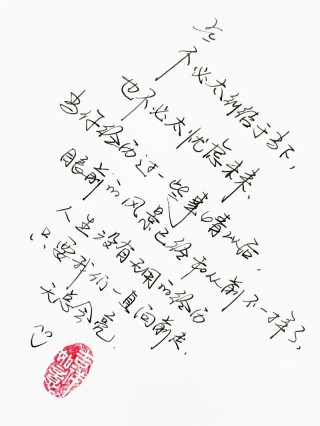 不必太纠结于当下,
也不必太忧虑未来,
当你经历过一些事情以后,
眼前的风景已经和从前不一样了,
人生没有无用的经历
只要我们一直向前走,
天总会亮.